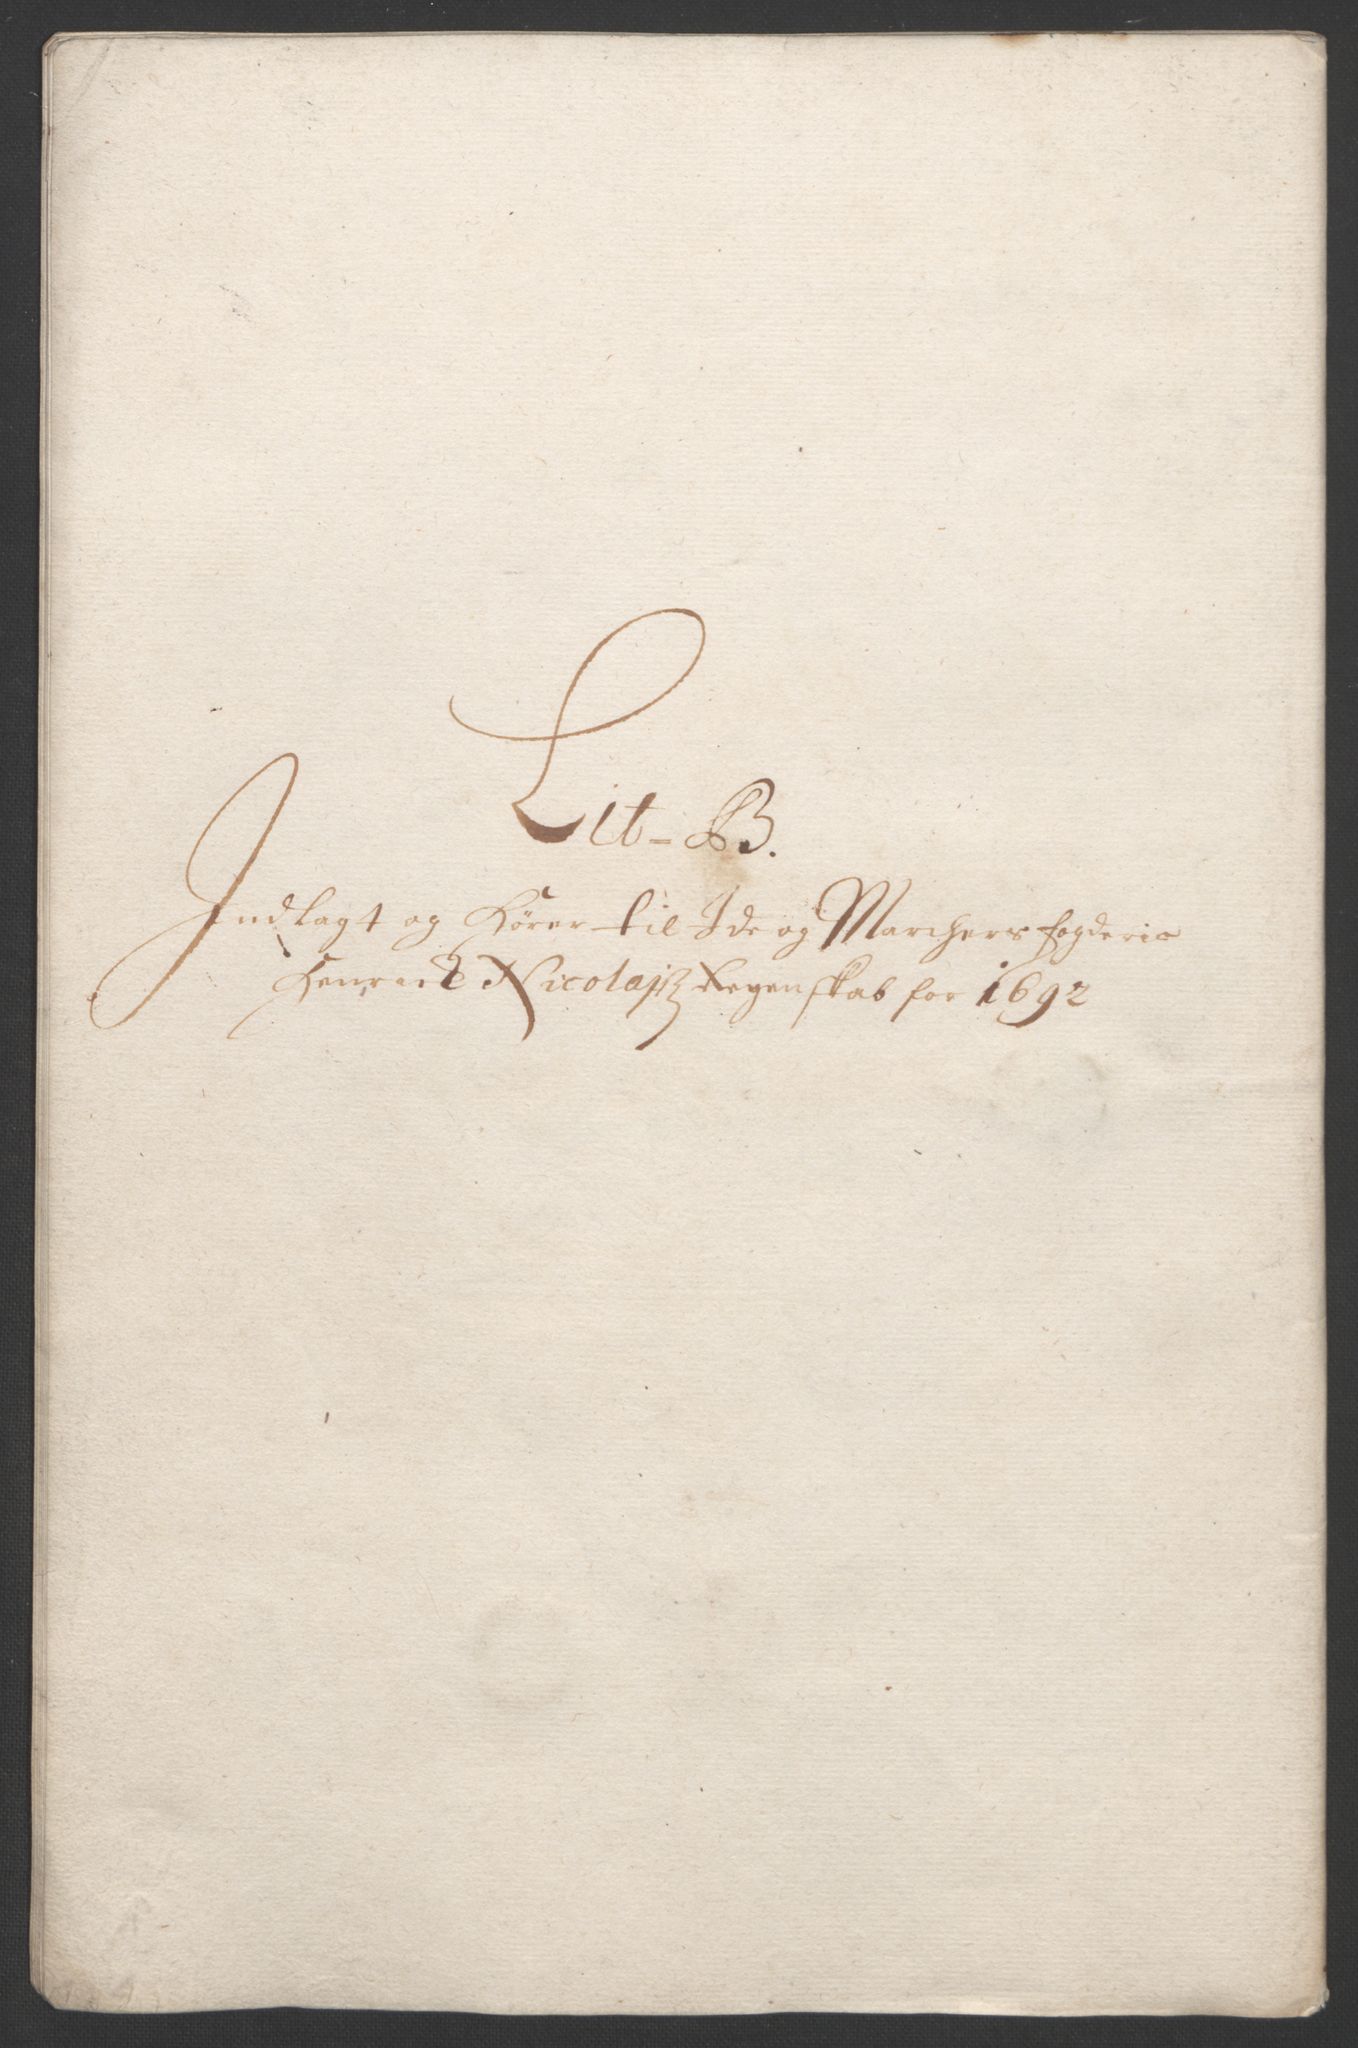 Lit- B.
Indlagt og hörer til Ide og Marchers fogderie
Henrich Nicolajsz Regenskab for 1692